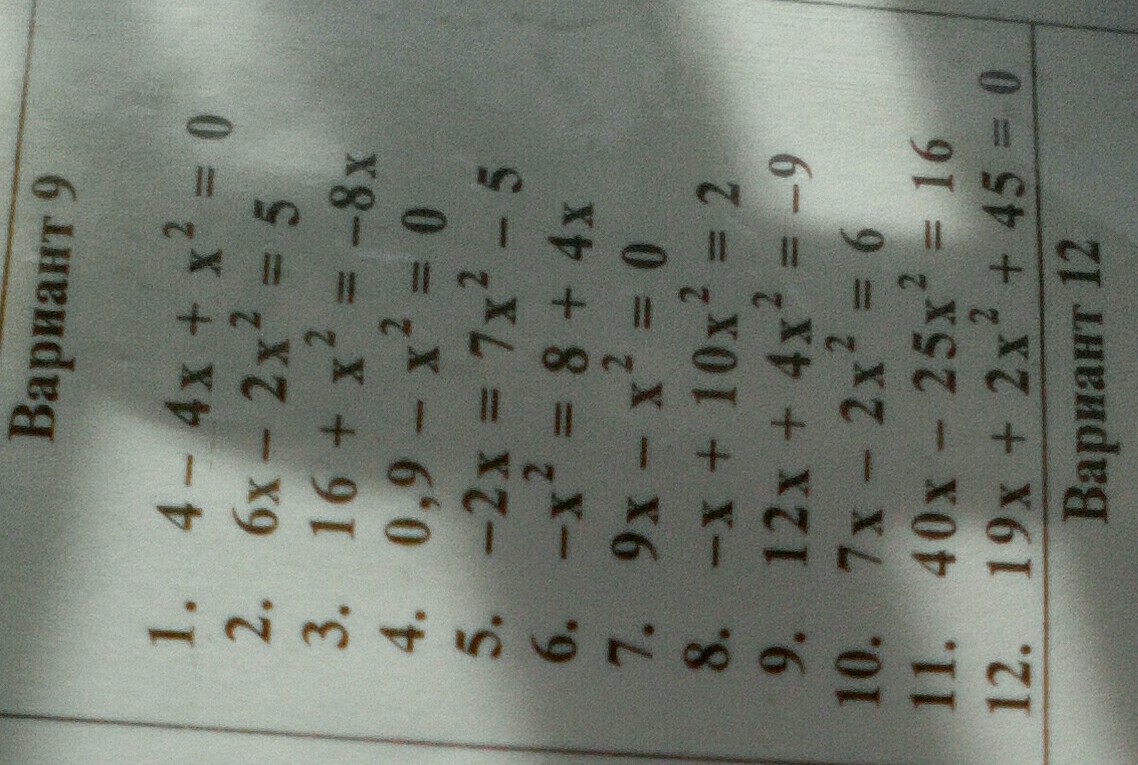 Вариант 9
1. 4 – 4x + x² = 0
2. 6x – 2x² = 5
3. 16 + x² = –8x
4. 0,9 – x² = 0
5. –2x = 7x² – 5
6. –x² = 8 + 4x
7. 9x – x² = 0
8. –x + 10x² = 2
9. 12x + 4x² = –9
10. 7x – 2x² = 6
11. 40x – 25x² = 16
12. 19x + 2x² + 45 = 0
Вариант 12